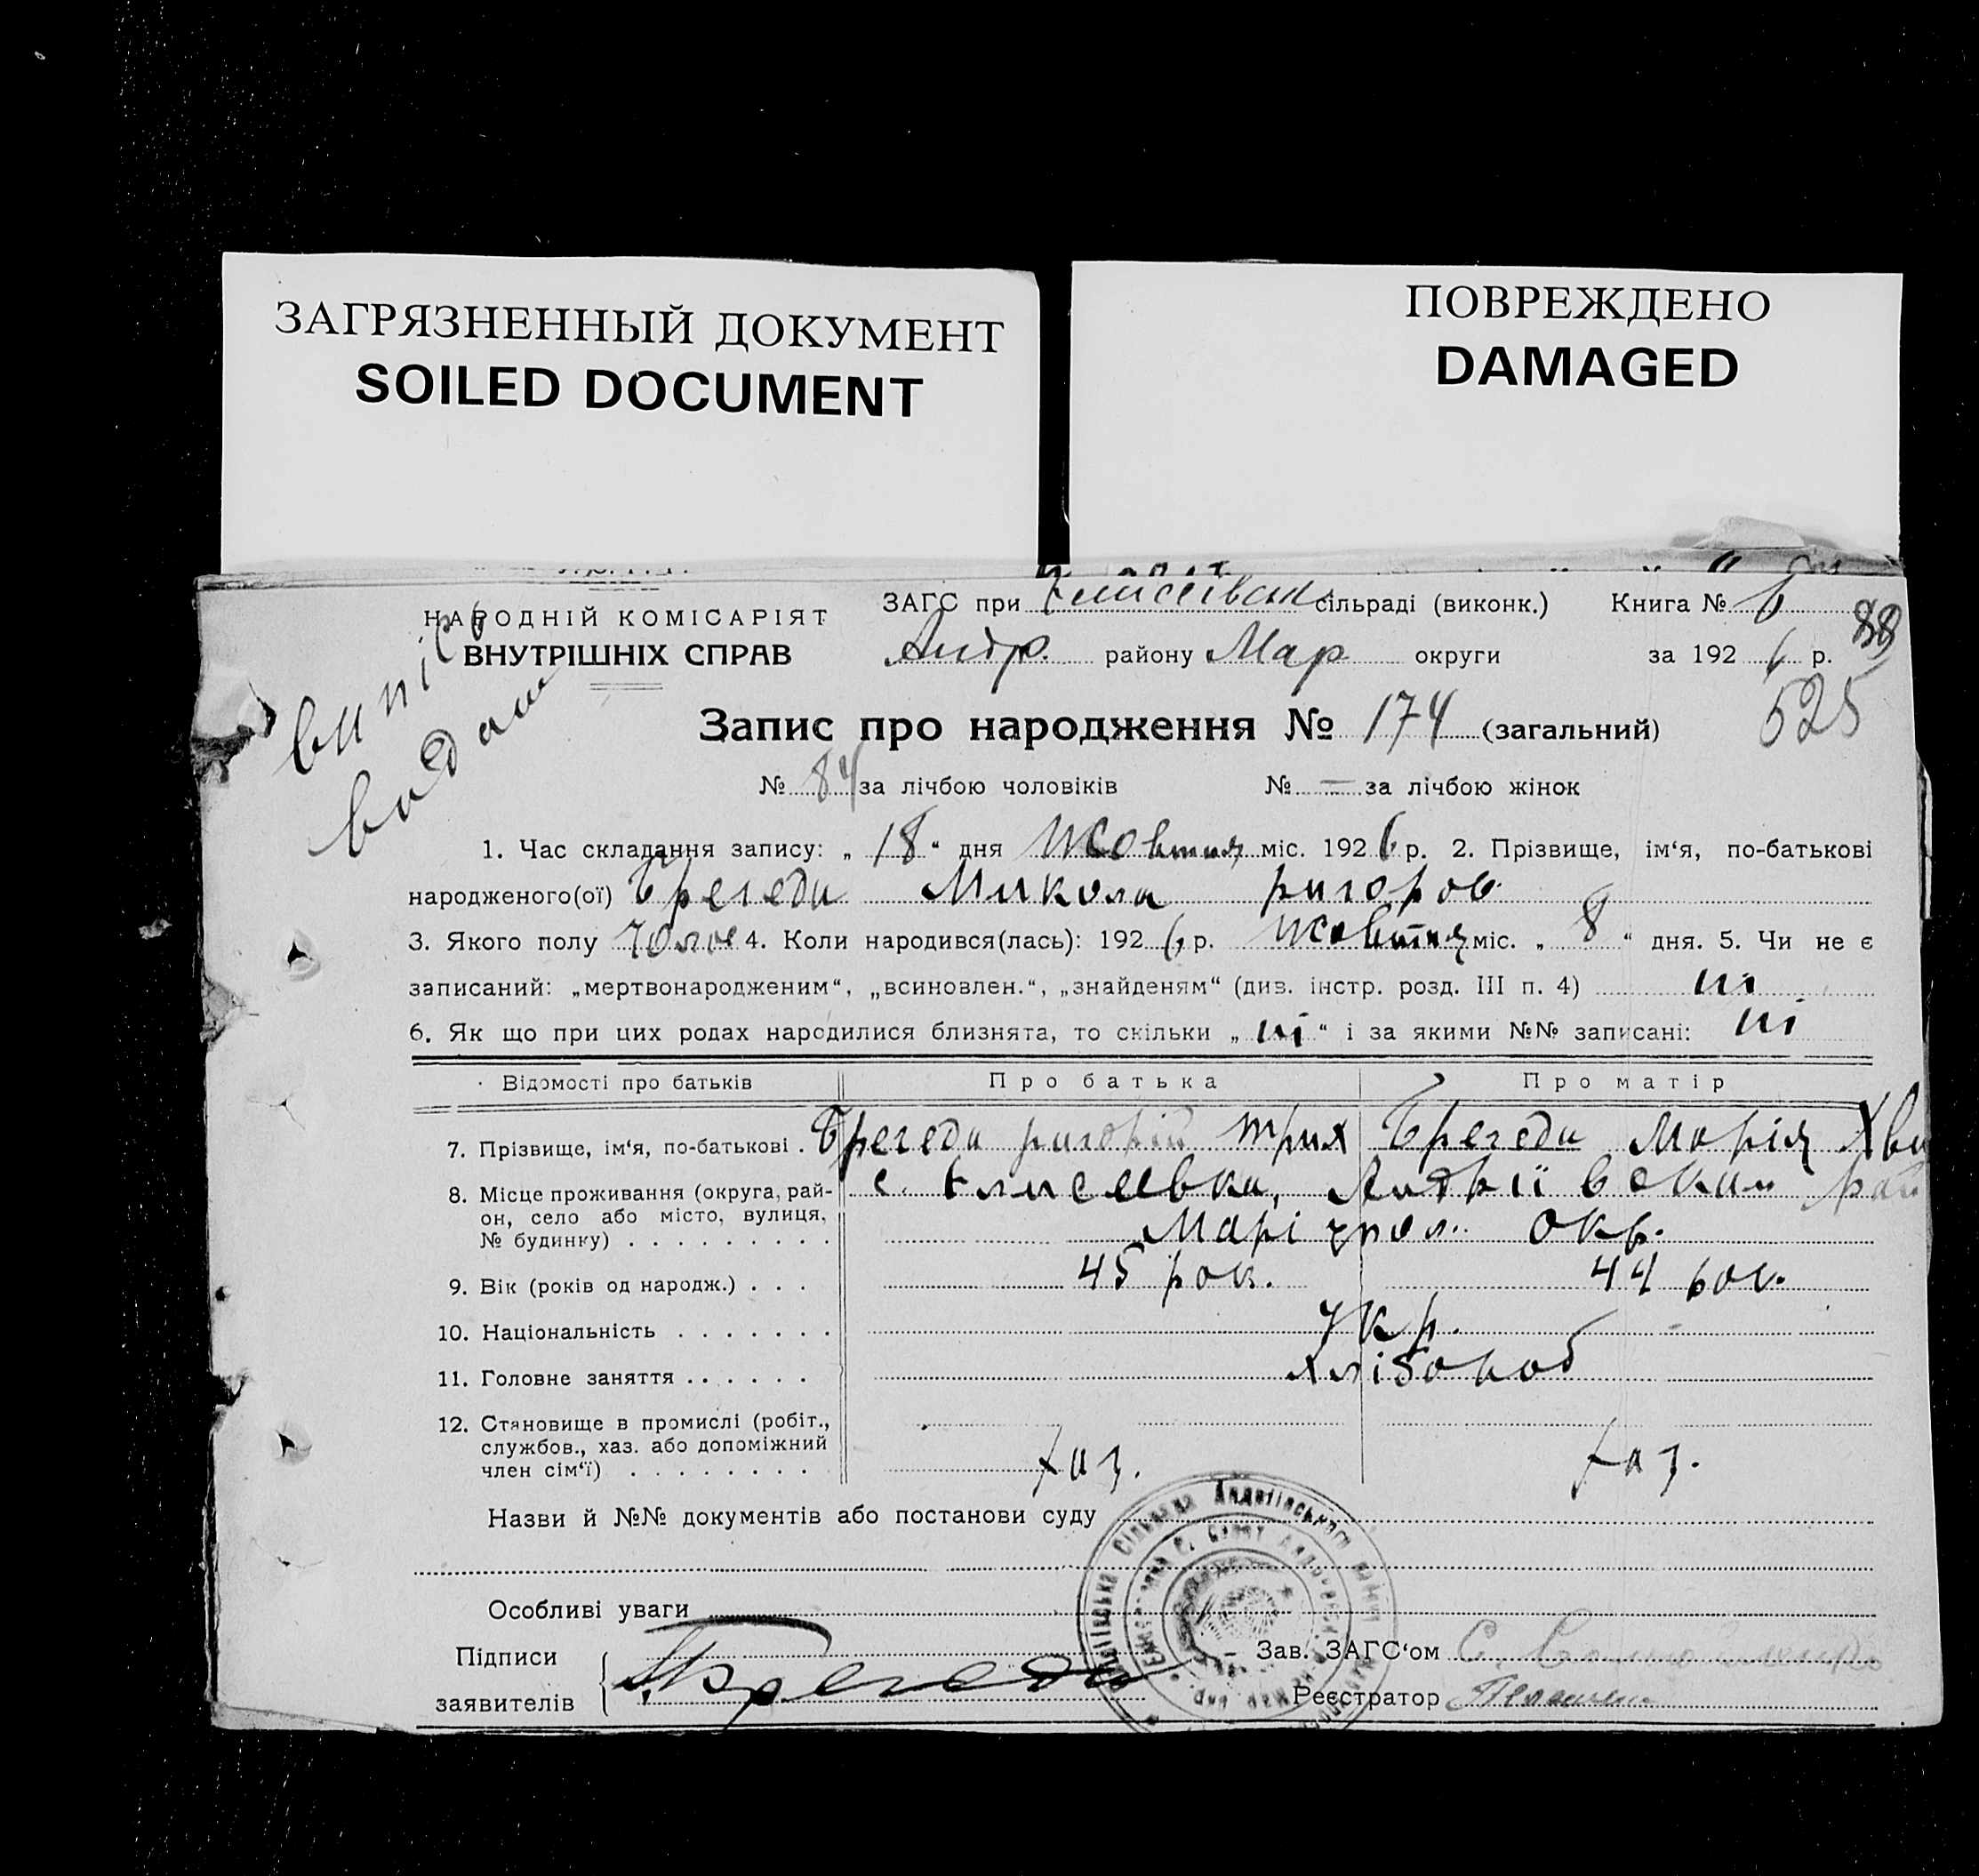 ЗАГРЯЗНЕННЫЙ ДОКУМЕНТ
SOILED DOCUMENT
ПОВРЕЖДЕНО
DAMAGED
НАРОДНІЙ КОМІСАРІЯТ
ВНУТРІШНІХ СПРАВ
ЗАГС при Єлисеївськ. сільраді (виконк.) Книга № 6
88
Андр. району Мар округи за 192 6 р.
525
випіс
видан
Запис про народження № 174 (загальний)
№ 84 за лічбою чоловіків № — за лічбою жінок
1. Час складання запису: „ 18 “ дня Жовтня міс. 192 6 р. 2. Прізвище, ім‘я, по-батькові
народженого(ої) Брегеда Микола ригоров.
3. Якого полу чолов 4. Коли народився(лась): 192 6 р. Жовтня міс. „ 8 “ дня. 5. Чи не є
записаний: „мертвонародженим“, „всиновлен.“, „знайденям“ (див. інстр. розд. III п. 4) ні
6. Як що при цих родах народилися близнята, то скільки „ ні “ і за якими №№ записані: ні
Відомості про батьків Про батька Про матір
7. Прізвище, ім‘я, по-батькові . Брегеда ригорій Трих Брегеда Марія Хви
8. Місце проживання (округа, рай-
он, село або місто, вулиця,
№ будинку) . . . . . . . . .
с. Єлисеевка, Андрїївским рай
Маріупол. Окр.
9. Вік (років од народж.) . . . 45 рок. 44 рок.
10. Національність . . . . . . . Укр.
11. Головне заняття . . . . . . Хлібороб
12. Становище в промислі (робіт.,
службов., хаз. або допоміжний
член сім‘ї) . . . . . . . .
хаз. хаз.
Назви й №№ документів або постанови суду
Сільрада Андріївського
Особливі уваги
Підписи
заявителів
Брегеда
Зав. ЗАГС‘ом
Реєстратор